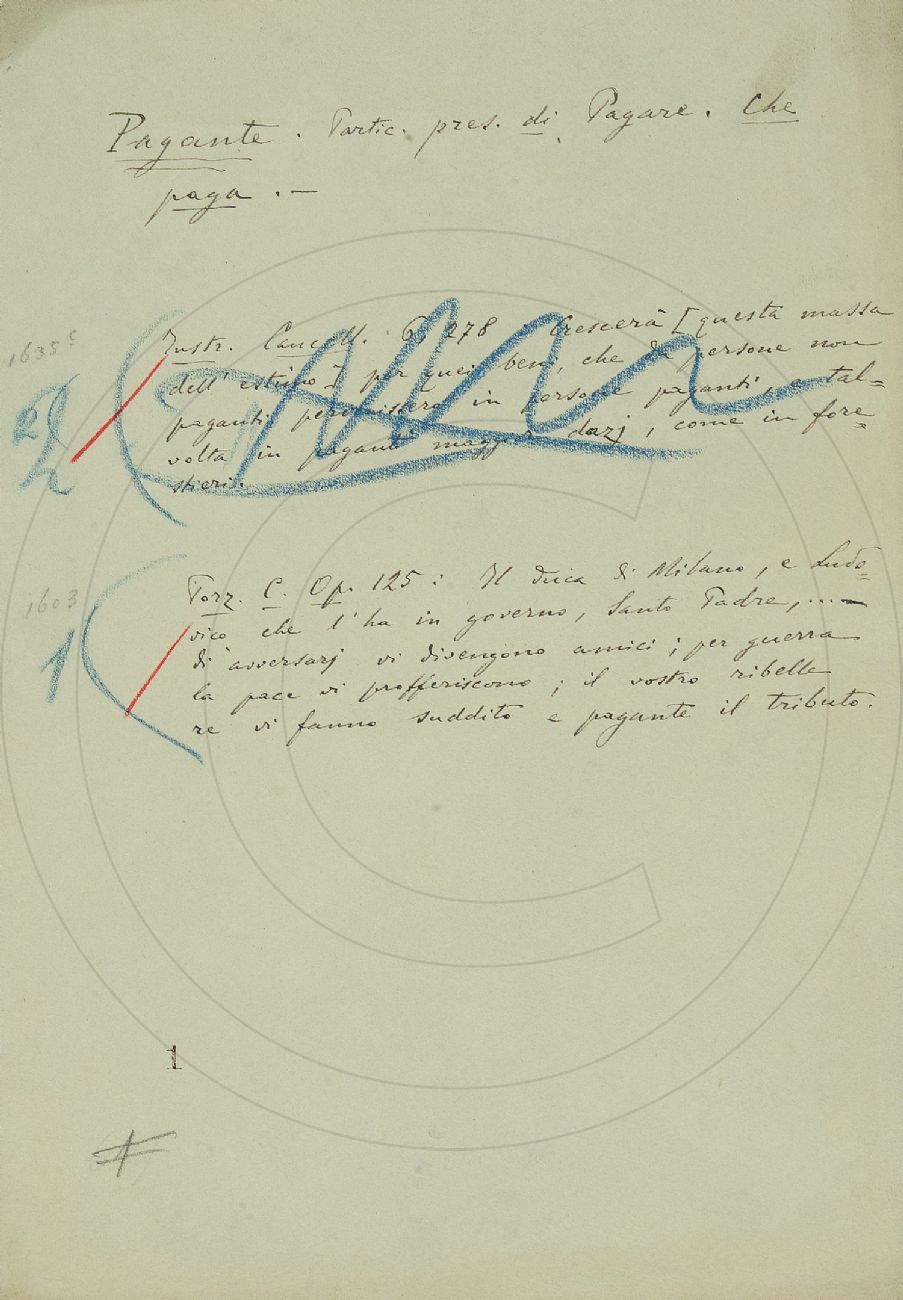 Pagante. Partic. pres. di Pagare. Che
paga. —
1635 c
Instr. Cancell. 278 : Crescerà [questa massa
dell' estimo] per quei beni, che da persone non
paganti pervenissero in persone paganti, e tal=
volta in paganti maggior dazj, come in fore=
stieri.
2
1603
Forz. C. Op. 125 : Il duca di Milano, e Ludo=
vico che l' ha in governo, Santo Padre, .... —
di avversarj vi divengono amici ; per guerra
la pace vi profferiscono ; il vostro ribelle
re vi fanno suddito e pagante il tributo.
1
1